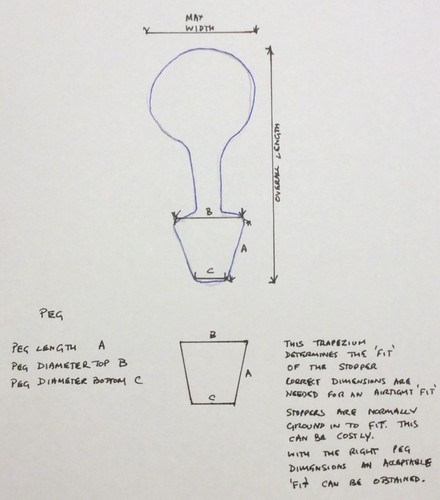 MAX
WIDTH
OVERALL LENGTH
B
A
C
PEG
PEG LENGTH A
PEG DIAMETER TOP B
PEG DIAMETER BOTTOM C
B
A
C
THIS TRAPEZIUM
DETERMINES THE 'FIT'
OF THE STOPPER
CORRECT DIMENSIONS ARE
NEEDED FOR AN AIRTIGHT 'FIT'
STOPPERS ARE NORMALLY
GROUND IN TO FIT. THIS
CAN BE COSTLY.
WITH THE RIGHT PEG
DIMENSIONS AN ACCEPTABLE
'FIT' CAN BE OBTAINED.